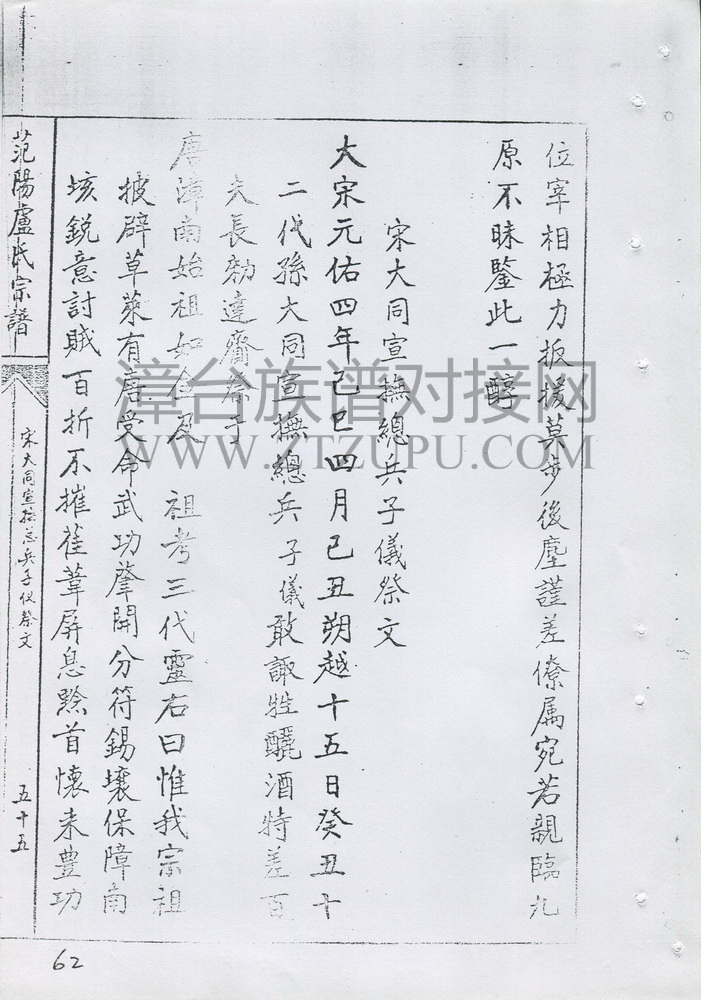 位宰相極力扳援莫步後塵謹差僚属宛若親臨九
原不昧鑒此一醇
宋大同宣撫總兵子儀祭文
大宋元佑四年己巳四月己丑朔越十五日癸丑十
二代孫大同宣撫總兵子儀敢諏牲釃酒特差百
夫長効達齎祭于
唐漳南始祖如金及 祖考三代靈右曰惟我宗祖
披辟草萊有唐受命武功肇開分符錫壤保障南
垓銳意討賊百折不摧萑葦屏息黔首懷来豊功
范陽盧氏宗譜
宋大同宣撫总兵子仪祭文
五十五
62
漳台族谱对接网
WWW.ZTZUPU.COM